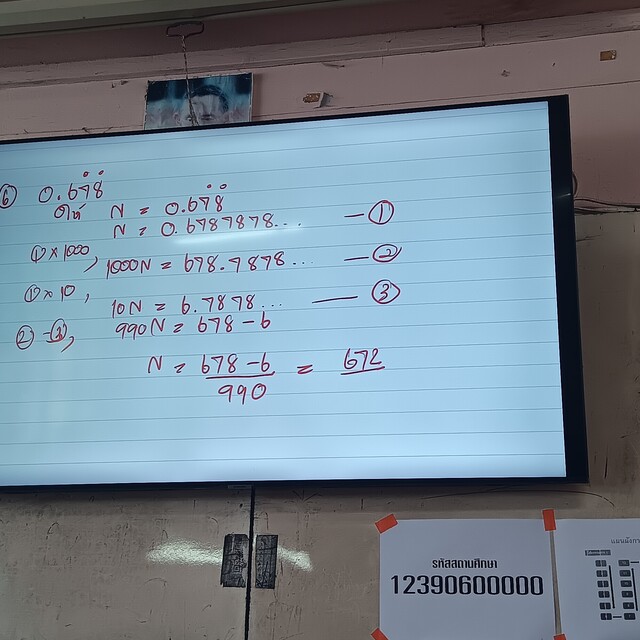 ⑥ 0.67̇8̇
ให้ N = 0.67̇8̇
N = 0.6787878... — ①
①×1000, 1000N = 678.7878... — ②
①×10, 10N = 6.7878... — ③
②-③, 990N = 678-6
N = 678-6 = 672
990
รหัสสถานศึกษา
12390600000